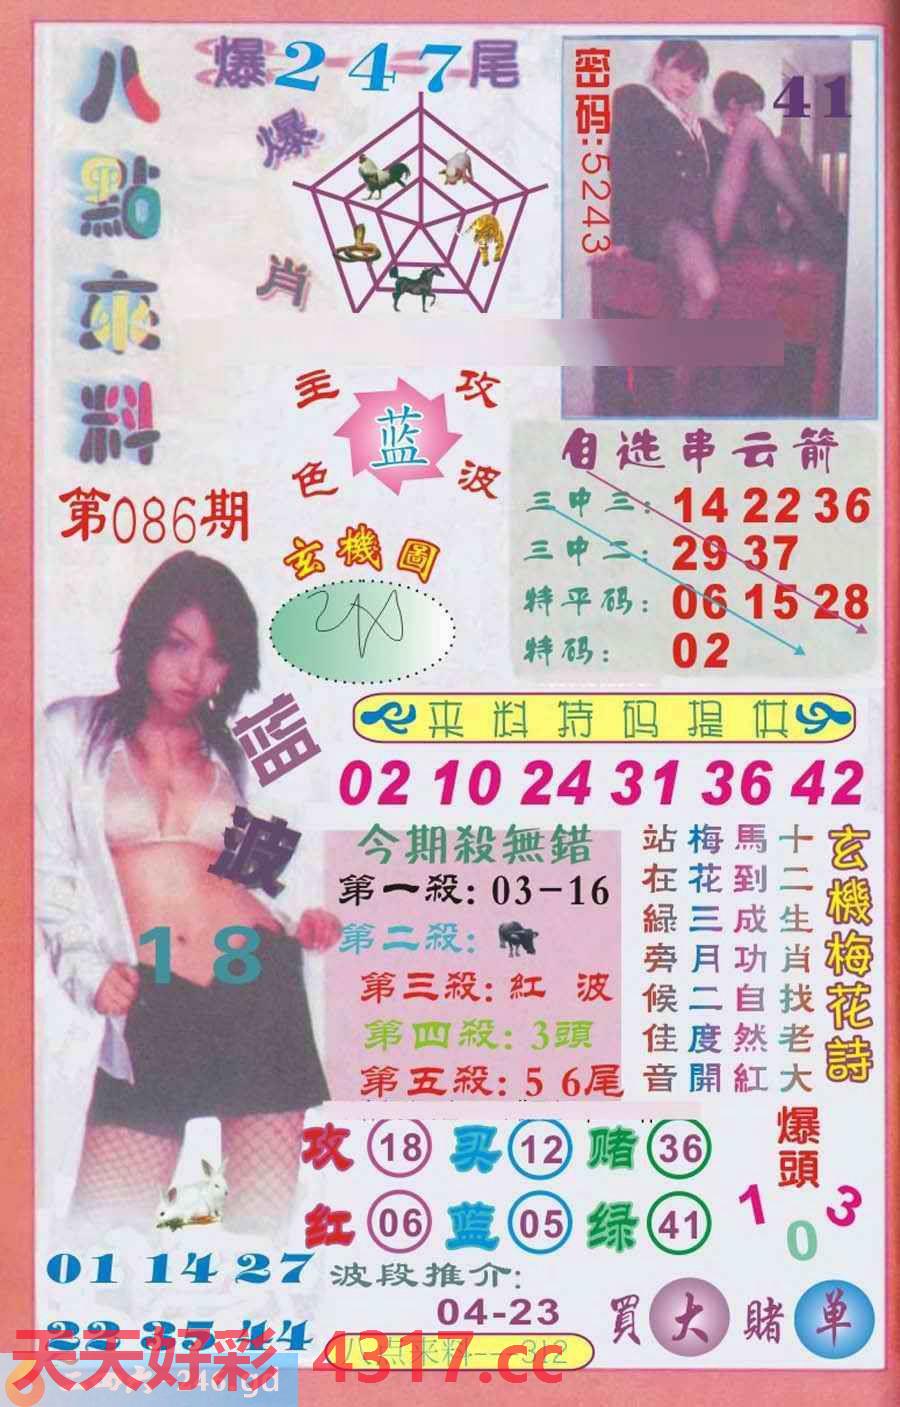 八點來料
爆247尾
爆肖
密码:5243
41
主攻
蓝
色波
第086期
玄機圖
自选串云箭
三中三: 14 22 36
三中二: 29 37
特平码: 06 15 28
特码: 02
来料特码提供
02 10 24 31 36 42
蓝波
18
今期殺無錯
第一殺: 03-16
第二殺:
第三殺: 紅波
第四殺: 3頭
第五殺: 5 6尾
玄機梅花詩
十二生肖找老大
馬到成功自然紅
梅花三月二度開
站在綠旁候佳音
攻 18 买 12 赌 36
红 06 蓝 05 绿 41
爆頭
1 0 3
01 14 27
22 35 44
波段推介:
04-23
買大 賭单
八点来料--312
天天好彩 4317.cc